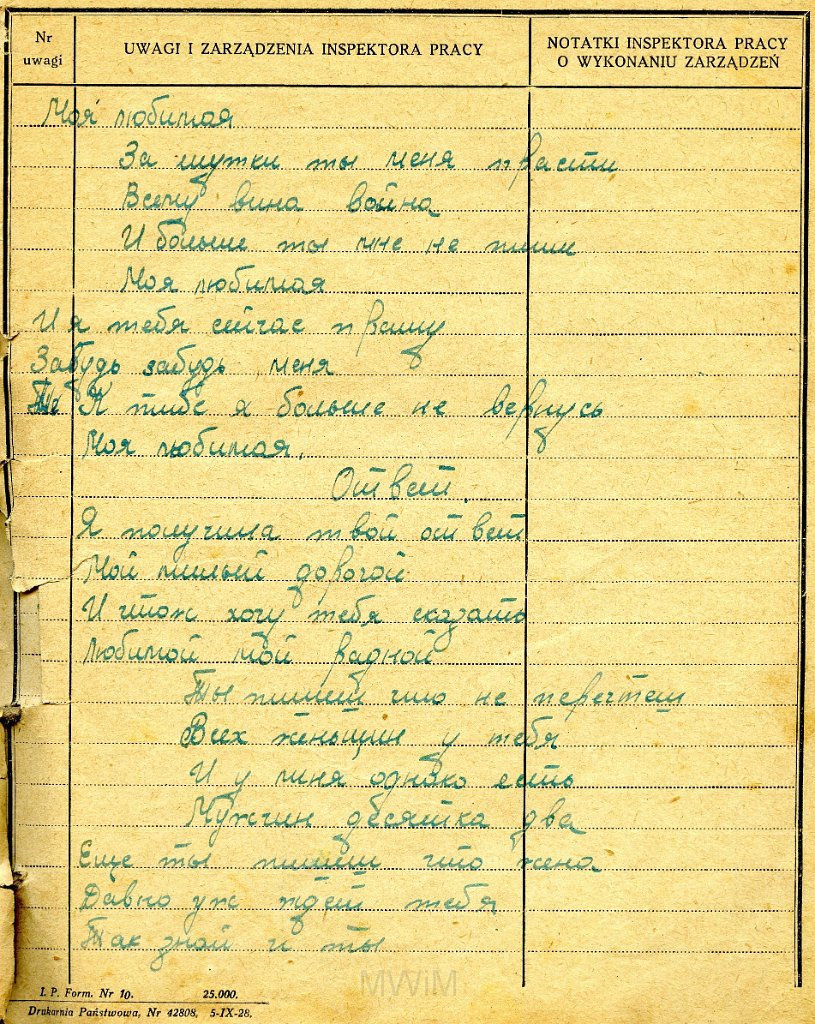 Nr uwagi
UWAGI I ZARZĄDZENIA INSPEKTORA PRACY
NOTATKI INSPEKTORA PRACY O WYKONANIU ZARZĄDZEŃ
Моя любимая
За шутки ты меня прасти
Всему вина война
И больше ты мне не пиши
Моя любимая
И я тебя сейчас прашу
Забудь забудь меня
К тибе я больше не вернусь
Моя любимая.
Ответ.
Я получила твой ответ
Мой милый дорогой
И штож хочу тебя сказать
Любимой мой радной
Ты пишеш што не перечтеш
Всех женьщин у тебя
И у миня однако есть
Мужчин десятка два
Еще ты пишеш што жена
Давно уж ждет тебя
Так знай и ты
MWiM
I. P. Form. Nr 10. 25.000.
Drukarnia Państwowa, Nr 42808. 5-IX-28.